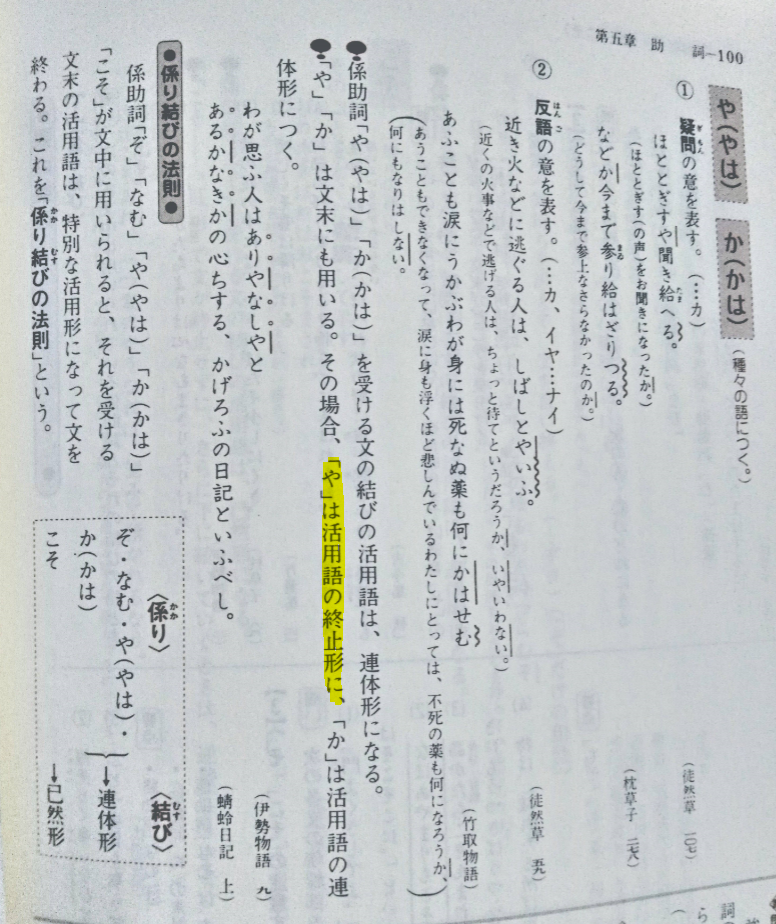 第五章 助 詞―100
や(やは) か(かは) (種々の語につく。)
① 疑問の意を表す。(…カ)
ほととぎすや聞き給へる。 (徒然草 一〇七)
(ほととぎす(の声)をお聞きになったか。)
などか今まで参り給はざりつる。 (枕草子 二七八)
(どうして今まで参上なさらなかったのか。)
② 反語の意を表す。(…カ、イヤ…ナイ)
近き火などに逃ぐる人は、しばしとやいふ。 (徒然草 五九)
(近くの火事などで逃げる人は、ちょっと待てというだろうか、いやいわない。)
あふことも涙にうかぶわが身には死なぬ薬も何にかはせむ (竹取物語)
(あうこともできなくなって、涙に身も浮くほど悲しんでいるわたしにとっては、不死の薬も何になろうか、
何にもなりはしない。)
係助詞「や(やは)」「か(かは)」を受ける文の結びの活用語は、連体形になる。
「や」「か」は文末にも用いる。その場合、「や」は活用語の終止形に、「か」は活用語の連
体形につく。
わが思ふ人はありやなしやと (伊勢物語 九)
あるかなきかの心ちする、かげろふの日記といふべし。 (蜻蛉日記 上)
●係り結びの法則●
係助詞「ぞ」「なむ」「や(やは)」「か(かは)」
「こそ」が文中に用いられると、それを受ける
文末の活用語は、特別な活用形になって文を
終わる。これを「係り結びの法則」という。
〈係り〉 〈結び〉
ぞ・なむ・や(やは)・
か(かは) →連体形
こそ →已然形